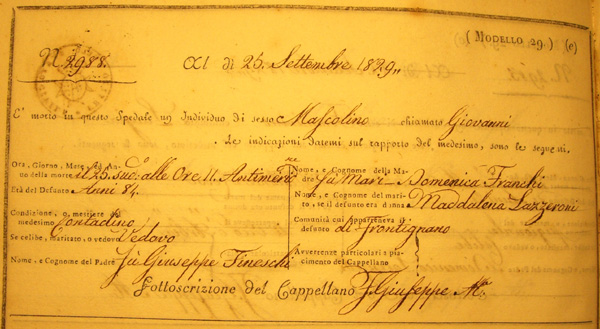 ( MODELLO 29. ) (e)
N. 2988. Al dì 25. Settembre 1829,,
E' morto in questo Spedale un Individuo di sesso Mascolino chiamato Giovanni
Le indicazioni datemi sul rapporto del medesimo, sono le seguenti,
Ora, Giorno, Mese, ed An-
no della morte il 25. sud.o alle Ore 11. Antimerne
Età del Defunto Anni 84.
Condizione, o, mestiere del
medesimo Contadino
Se celibe, maritato, o vedovo Vedovo
Nome, e Cognome del Padre Fù Giuseppe Fineschi
Nome, e Cognome della Ma-
dre Fù Mari-Domenica Franchi
Nome, e Cognome del mari-
to, se il defunto era donna Maddalena Lazzeroni
Comunità cui apparteneva il
defunto di Frontignano
Avvertenze particolari a pia-
cimento del Cappellano
Sottoscrizione del Cappellano F. Giuseppe Ma.